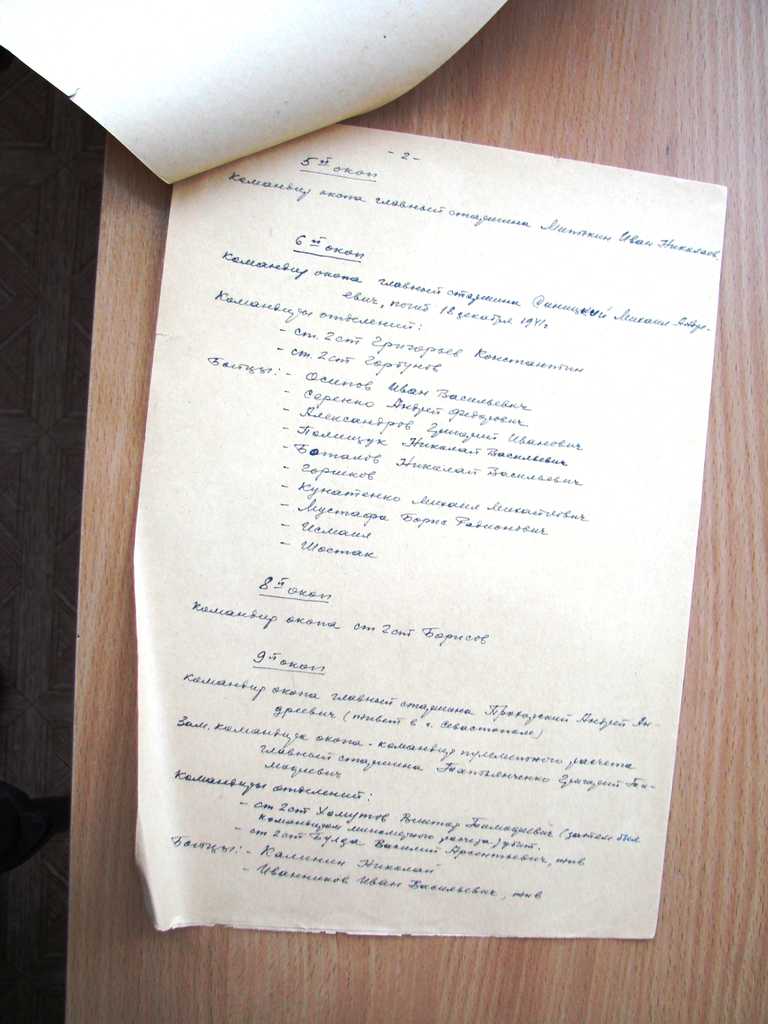 - 2 -
5ый окоп
Командир окопа главный старшина Митькин Иван Николаев.
6ой окоп
Командир окопа главный старшина Синицкий Михаил Андре-
евич, погиб 18 декабря 1941г
Командиры отделений:
- ст. 2 ст Григорьев Константин
- ст. 2 ст Горбунов
Бойцы: - Осипов Иван Васильевич
- Серенко Андрей Федорович
- Александров Григорий Иванович
- Полищук Николай Васильевич
- Боталов Николай Васильевич
- Горшков
- Кунатенко Михаил Михайлович
- Мустафа Борис Родионович
- Исмаил
- Шостак
8й окоп
Командир окопа ст 2 ст Борисов
9й окоп
Командир окопа главный старшина Андрей Ан-
дреевич (живет в г. Севастополе)
Зам. командира окопа - командир пулеметного расчета
главный старшина Татьянченко Григорий Ти-
мофеевич
Командиры отделений:
- ст 2 ст Хомутов Виктор Тимофеевич (затем был
командиром минометного расчета) убит.
- ст 2 ст Булда Василий Арсентьевич, жив
Бойцы: - Калинин Николай
- Иванников Иван Васильевич, жив